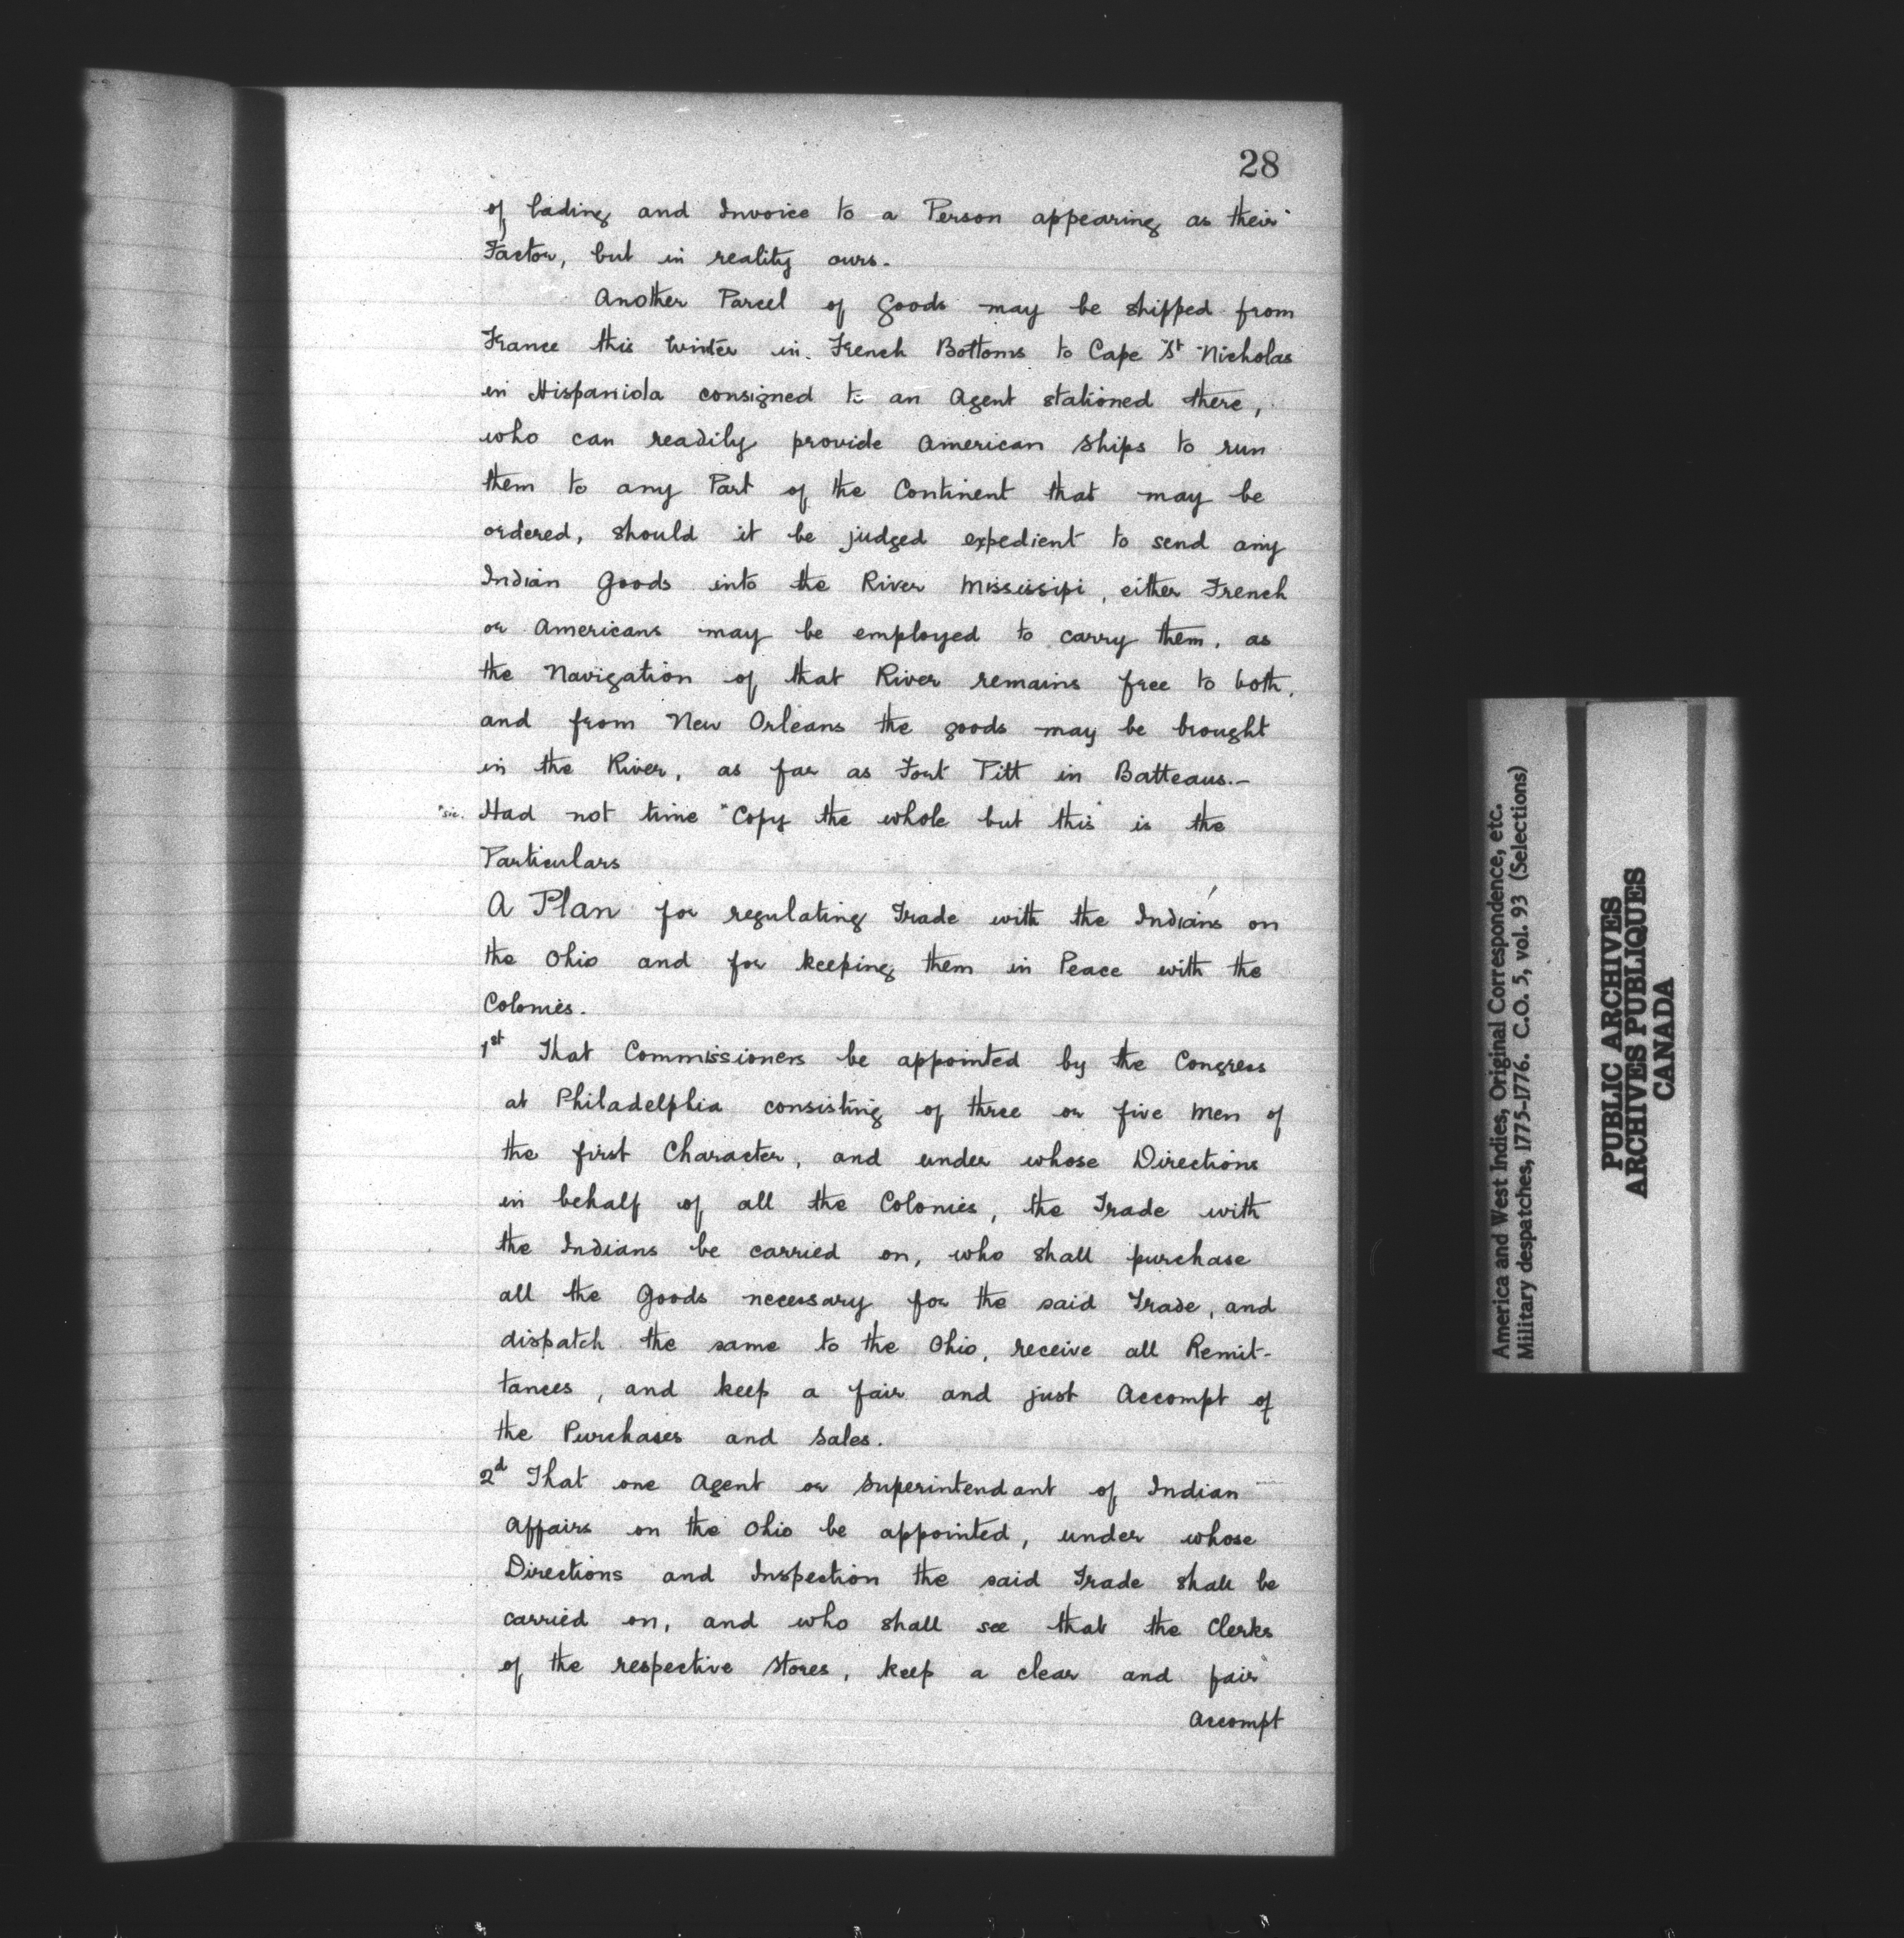 28
of lading and Invoice to a Person appearing as their
Factor, but in reality ours.
Another Parcel of Goods may be shipped from
France this Winter in French Bottoms to Cape St Nicholas
in Hispaniola consigned to an Agent stationed there,
who can readily provide American Ships to run
them to any Part of the Continent that may be
ordered, should it be judged expedient to send any
Indian Goods into the River Mississipi, either French
or Americans may be employed to carry them, as
the Navigation of that River remains free to both,
and from New Orleans the goods may be brought
in the River, as far as Fort Pitt in Batteaus.-
"sic. Had not time "Copy the whole but this is the
Particulars
A Plan for regulating Trade with the Indians on
the Ohio and for keeping them in Peace with the
Colonies.
1st That Commissioners be appointed by the Congress
at Philadelphia consisting of three or five Men of
the first Character, and under whose Directions
in behalf of all the Colonies, the Trade with
the Indians be carried on, who shall purchase
all the Goods necessary for the said Trade, and
dispatch the same to the Ohio, receive all Remit-
tances, and keep a fair and just Accompt of
the Purchases and Sales.
2d That one Agent or Superintendant of Indian
Affairs on the Ohio be appointed, under whose
Directions and Inspection the said Trade shall be
carried on, and who shall see that the Clerks
of the respective Stores, keep a clear and fair
Accompt
America and West Indies, Original Correspondence, etc.
Military despatches, 1775-1776. C.O. 5, vol. 93 (Selections)
PUBLIC ARCHIVES
ARCHIVES PUBLIQUES
CANADA